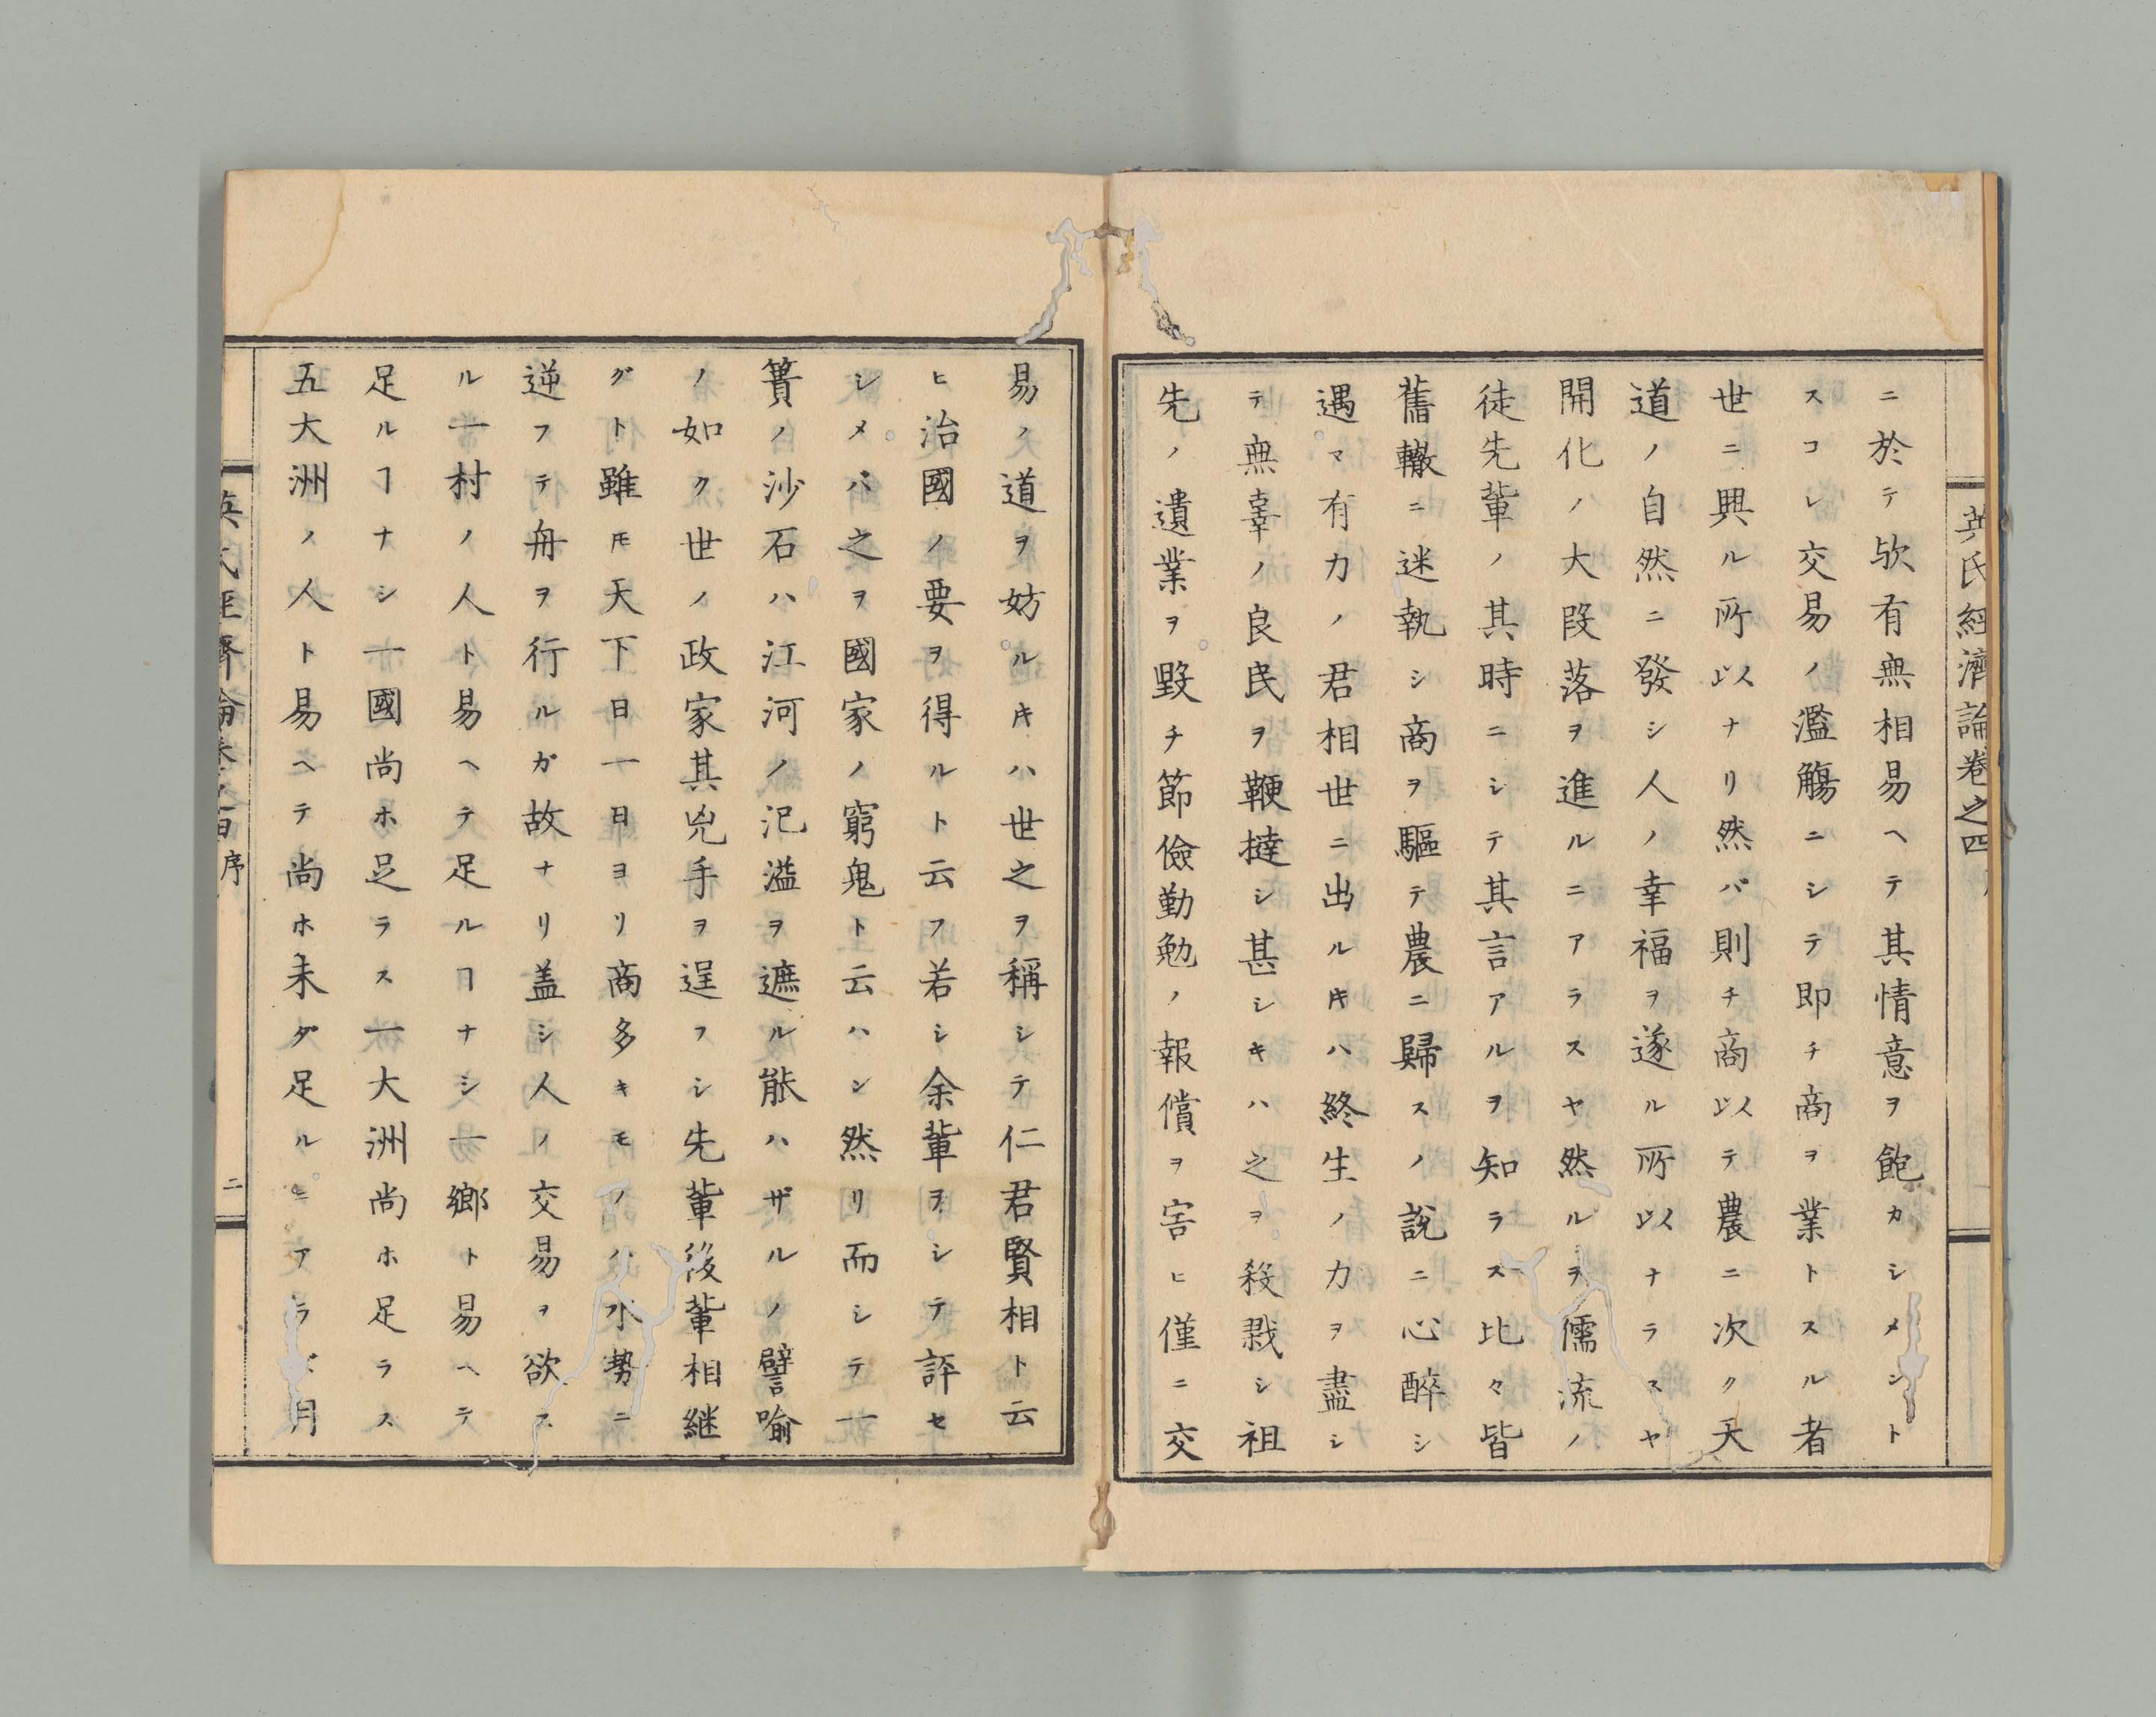 英氏經濟論卷之四
ニ於テ欤有無相易ヘテ其情意ヲ飽カシメント
スコレ交易ノ濫觴ニシテ即チ商ヲ業トスル者
世ニ興ル所以ナリ然バ則チ商以テ農ニ次ク天
道ノ自然ニ發シ人ノ幸福ヲ遂ル所以ナラスヤ
開化ノ大段落ヲ進ルニアラスヤ然ルヲ儒流ノ
徒先輩ノ其時ニシテ其言アルヲ知ラス比々皆
舊轍ニ迷執シ商ヲ驅テ農ニ歸スノ說ニ心醉シ
遇マ有力ノ君相世ニ出ルキハ終生ノ力ヲ盡シ
テ無辜ノ良民ヲ鞭撻シ甚シキハ之ヲ殺戮シ祖
先ノ遺業ヲ毀チ節儉勤勉ノ報償ヲ害ヒ僅ニ交
易ノ道ヲ妨ルキハ世之ヲ稱シテ仁君賢相ト云
ヒ治國ノ要ヲ得ルト云フ若シ余輩ヲシテ評セ
シメバ之ヲ國家ノ窮鬼ト云ハン然リ而シテ一
簣ノ沙石ハ江河ノ汜溢ヲ遮ル能ハザルノ譬喻
ノ如ク世ノ政家其兇手ヲ逞フシ先輩後輩相継
グト雖𪜈天下日一日ヨリ商多キモノハ水勢ニ
逆フテ舟ヲ行ルガ故ナリ盖シ人ノ交易ヲ欲ス
ル一村ノ人ト易ヘテ足ルヿナシ一鄉ト易ヘテ
足ルヿナシ一國尚ホ足ラス一大洲尚ホ足ラス
五大洲ノ人ト易ヘテ尚ホ未ダ足ルニアラズ月
序
二